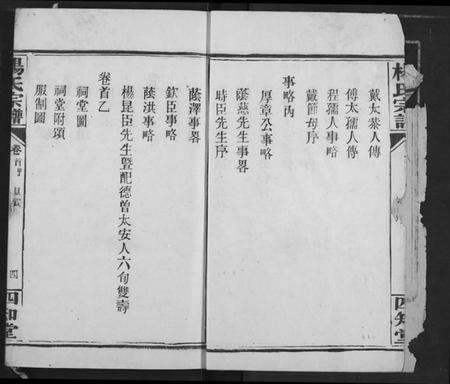 楊氏宗譜
四知堂
戴太恭人傳
傅太孺人傳
程孺人事略
戴節母序
事略丙
厚章公事略
蔭燕先生事畧
時臣先生序
蔭澤事畧
欽臣事略
蔭洪事略
楊昆臣先生暨配德曾太安人六旬雙壽
卷首乙
祠堂圖
祠堂附頌
服制圖
楊氏宗譜
卷首
四
四知堂